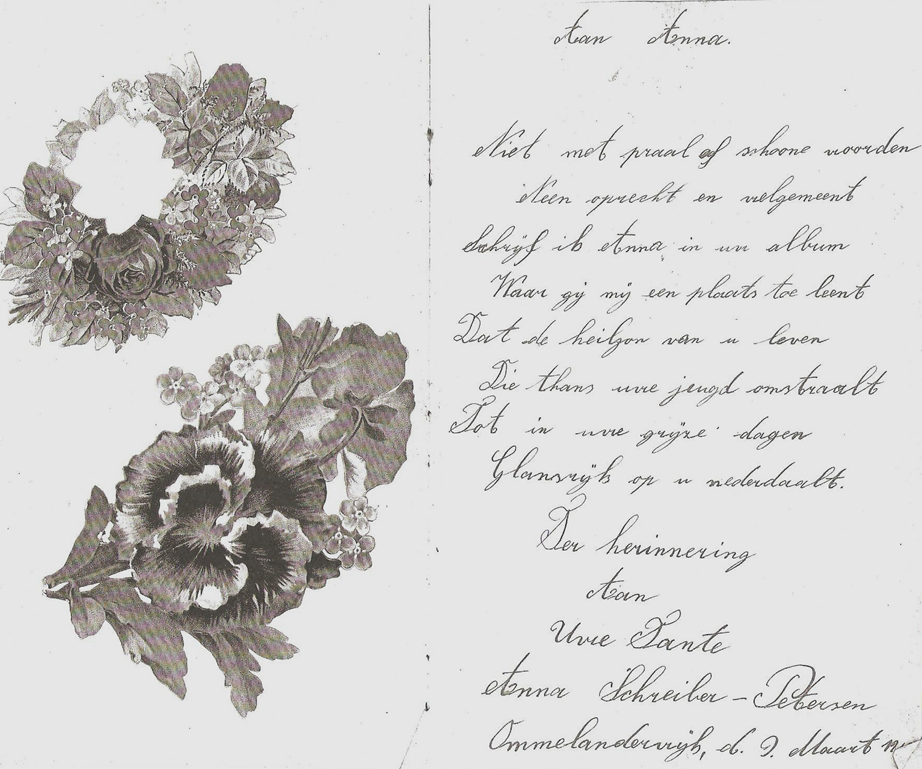 Aan Anna.
Niet met praal of schoone woorden
Neen oprecht en welgemeent
Schrijf ik Anna in uw album
Waar gij mij een plaats toe leent
Dat de heilzon van u leven
Die thans uwe jeugd omstraalt
Tot in uwe grijze dagen
Glansrijk op u nederdaalt.
Ter herinnering
Aan
Uwe Tante
Anna Schreiber - Petersen
Ommelanderwijk, d. 9 Maart